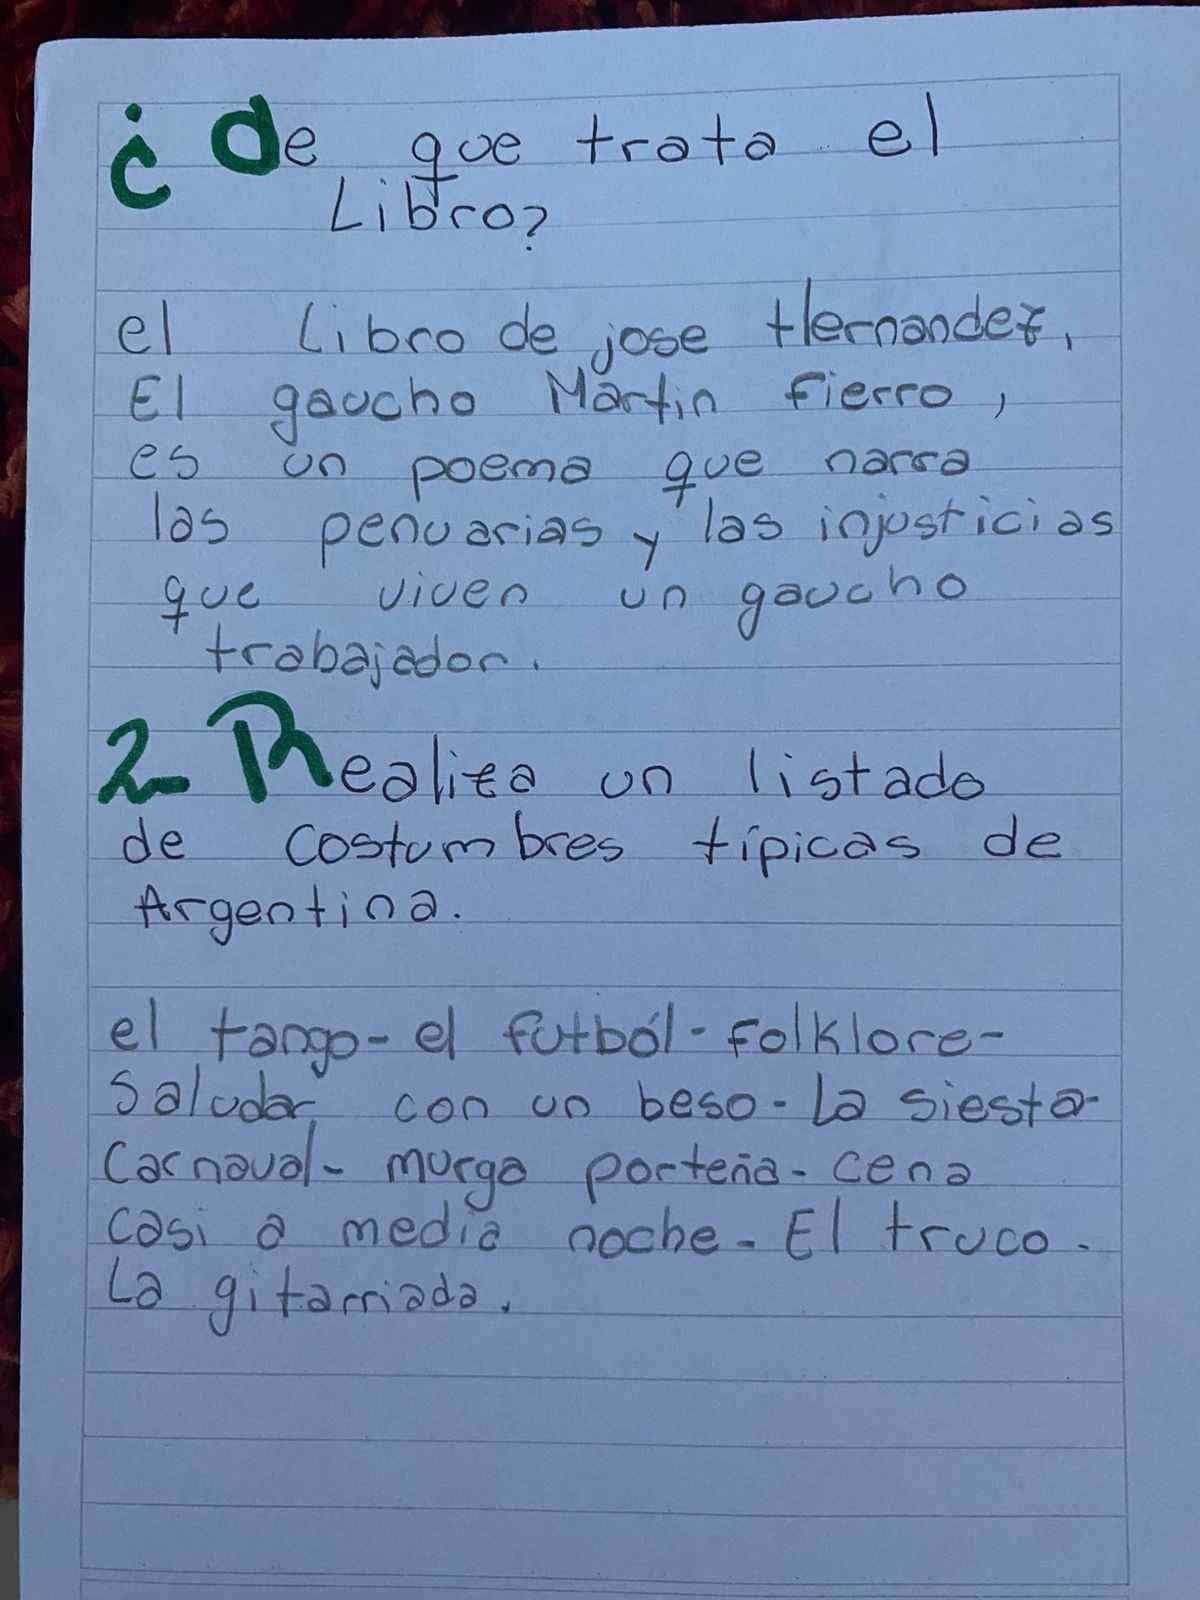 ¿ De que trata el
Libro?
el Libro de jose Hernandez,
El gaucho Martin Fierro,
es un poema que narra
las penuarias y las injusticias
que viven un gaucho
trabajador.
2- Realiza un listado
de costumbres típicas de
Argentina.
el tango- el futból- Folklore-
Saludar con un beso- La siesta-
Carnaval- murga porteña- cena
casi a media noche- El truco-
La gitarriada.